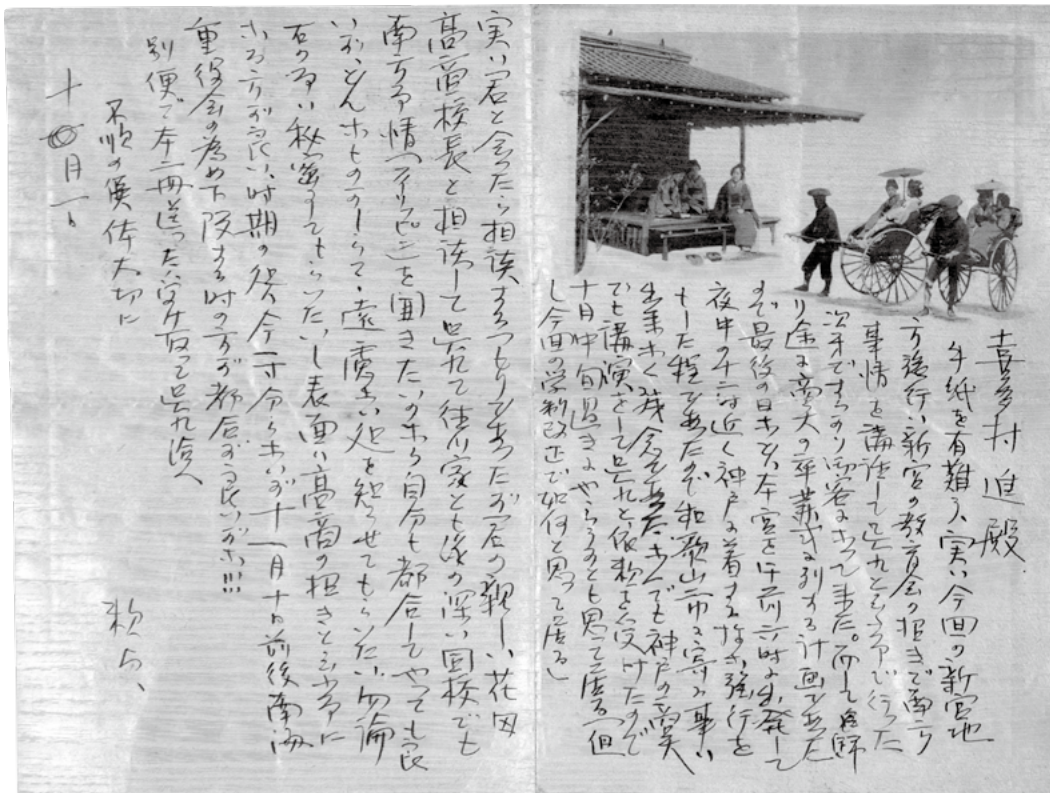 喜多村進殿
手紙を有難う、実ハ今回の新宮地
方旅行ハ新宮の教育会の招きで南方
事情を講話して呉れと云ふ事で行った
次第ですつかり講客になつて来た。而して帰
り途に高大の卒業式に列する計画であった
ので最後の日など、本宮を午前六時に出発して
夜中十二時近く神戸に着する強行を
した程であたので和歌山市に寄る事ハ
出来なく残念であた、なんでも神戸の高
でも講演をして呉れと依頼を受けたので
十月中旬過ぎにやらうかとも思って居る、但
し今回の学制改正で如何と思って居る
実ハ君と会つたら相談するつもりであったが君の親しい花田
高商校長と相談して呉れて徳川家とも縁の深い同校でも
南方事情(フイリピン)を聞きたいのなら自分も都合してやっても良
いが、どんなものかしらて、遠慮ない処を知らせてもらいたい、勿論
君の名ハ秘密にしてもらいたい、し表面ハ高商の招きと云ふ事に
なる方が良い、時期の処今一寸分らないが十一月十日前後南海
重役会の為め下阪する時の方が都合が良いがな!!!
別便で本二冊送った、受け取って呉れ給へ
不順の候体大切に
十月一日
頼貞、